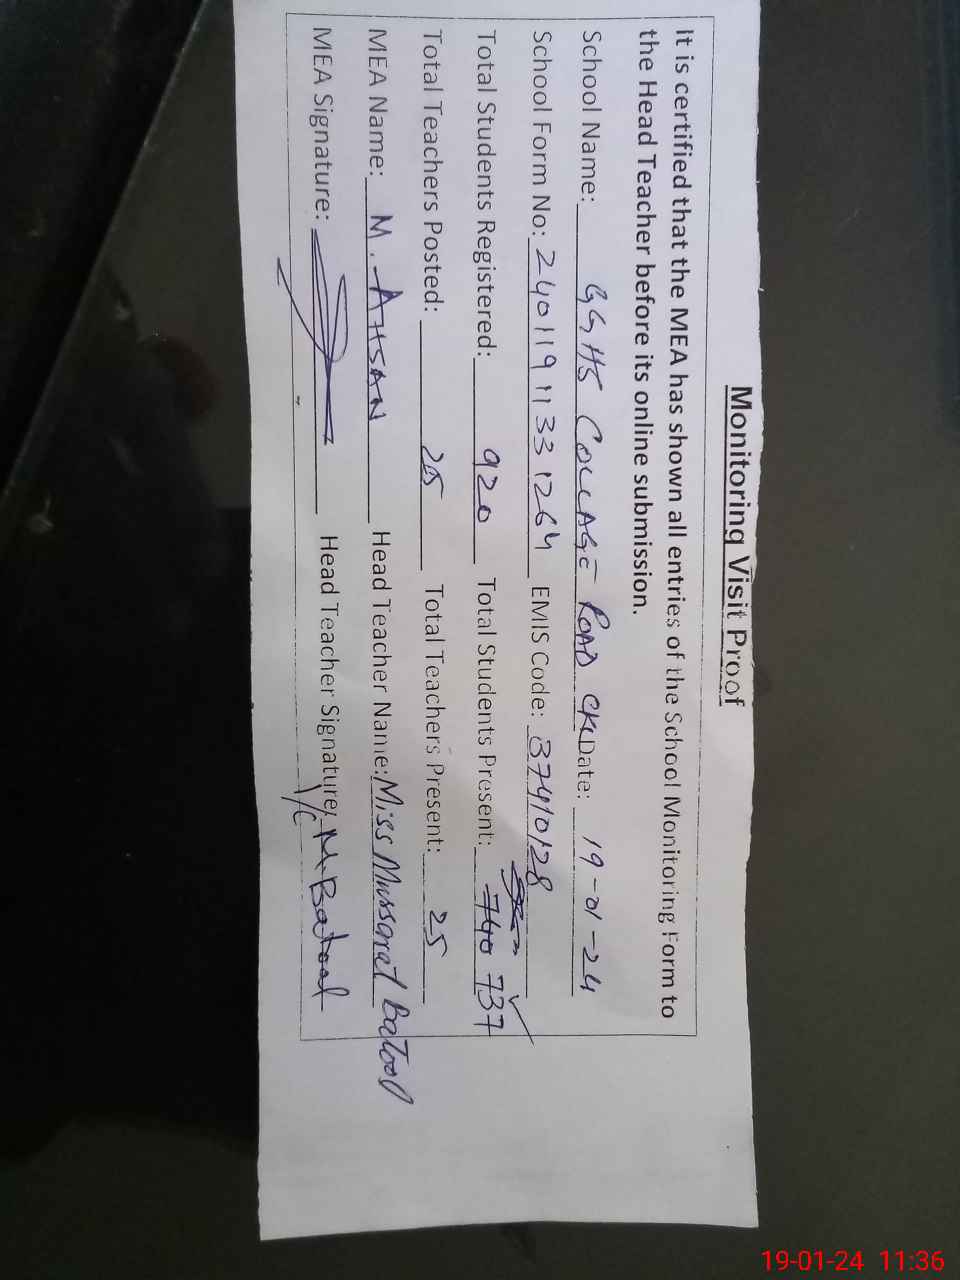 Monitoring Visit Proof
It is certified that the MEA has shown all entries of the School Monitoring Form to
the Head Teacher before its online submission.
School Name: GGHS COLLAGE ROAD CKL Date: 19-01-24
School Form No: 24011911331264 EMIS Code: 37410128
Total Students Registered: 920 Total Students Present: 740 737
Total Teachers Posted: 25 Total Teachers Present: 25
MEA Name: M. AHSAN Head Teacher Name: Miss Mussarat Batool
MEA Signature: Head Teacher Signature: M. Batool
I/C
19-01-24 11:36